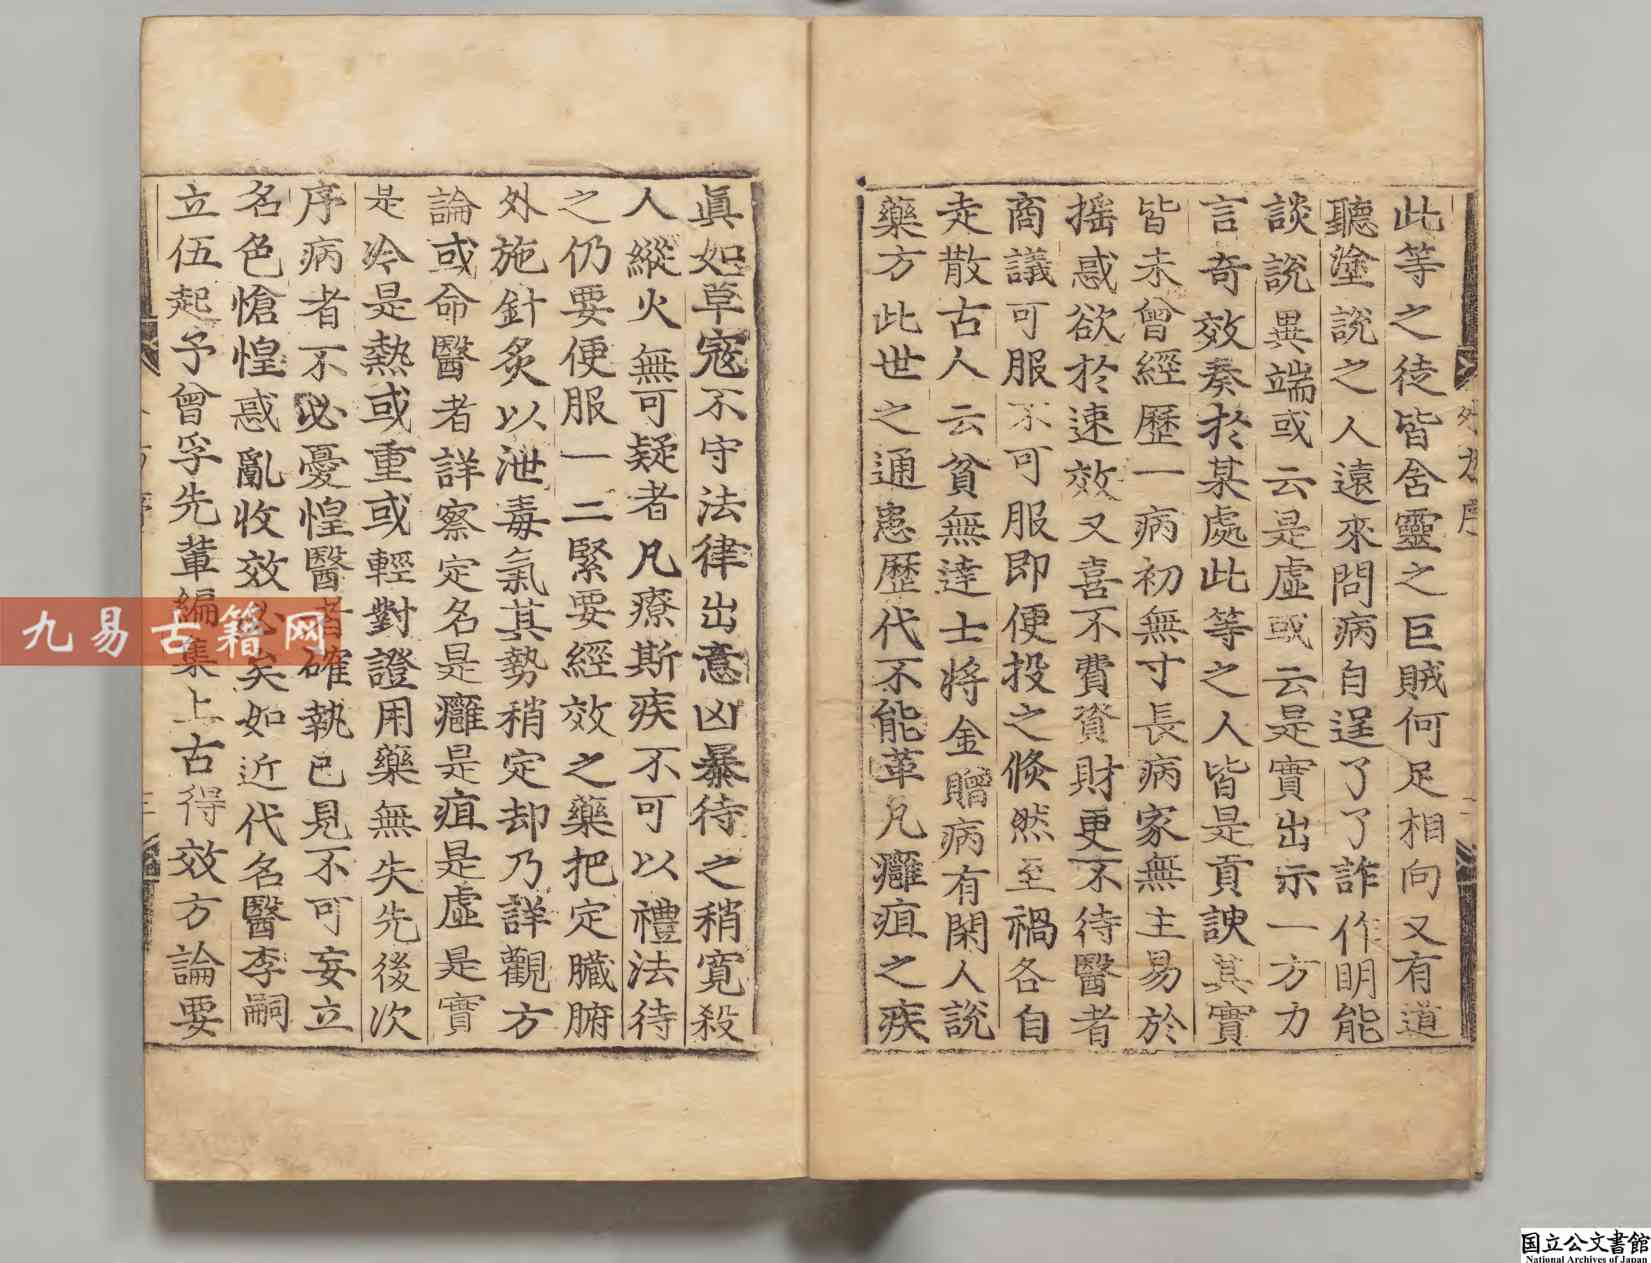 此等之徒皆含靈之巨賊何足相向又有道
聽塗說之人遠來問病自逞了了詐作明能
談說異端或云是虛或云是實出示一方力
言奇效奏於某處此等之人皆是貢諛其實
皆未曾經歷一病初無寸長病家無主易於
搖惑欲於速效又喜不費資財更不待醫者
商議可服不可服即便投之倐然至禍各自
走散古人云貧無達士將金贈病有閑人說
藥方此世之通患歷代不能革凡癰疽之疾
眞如草寇不守法律出意凶暴待之稍寬殺
人縱火無可疑者凡療斯疾不可以禮法待
之仍要便服一二緊要經效之藥把定臟腑
外施針炙以泄毒氣其勢稍定却乃詳觀方
論或命醫者詳察定名是癰是疽是虛是實
是冷是熱或重或輕對證用藥無失先後次
序病者不必憂惶醫者確執已見不可妄立
名色愴惶惑亂收效必矣如近代名醫李嗣
立伍起予曾孚先軰編集上古得效方論要
九易古籍网
国立公文書館
National Archives of Japan